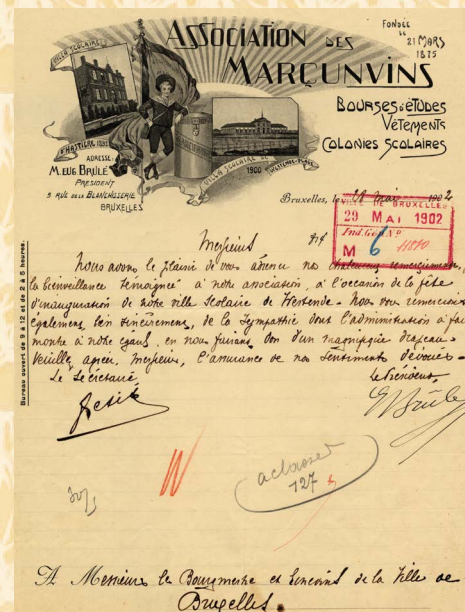 ASSOCIATION DES
MARÇUNVINS
FONDÉE
LE
21 MARS
1875
BOURSES D'ÉTUDES
VÊTEMENTS
COLONIES SCOLAIRES
VILLA SCOLAIRE
D'HASTIÈRE 1892
ADRESSE
M. EUG BRÛLÉ
PRÉSIDENT
5 RUE DE LA BLANCHISSERIE
BRUXELLES
VILLA SCOLAIRE DE
WESTENDE-PLAGE
1900
Bruxelles, le 28 mai 1902
VILLE DE BRUXELLES
29 MAI 1902
Ind. Gén. N°
M 6 11810
Messieurs
Nous avons le plaisir de vous adresser nos chaleureux remerciements,
la bienveillance témoignée à notre association, à l'occasion de la fête
d'inauguration de notre villa scolaire de Westende. Nous vous remercions
également bien sincèrement, de la sympathie dont l'administration a fait
montre à notre égard, en nous faisant don d'un magnifique drapeau.
Veuillez agréer, Messieurs, l'assurance de nos sentiments dévoués.
Le Secrétaire
Le Président
E Brûlé
Bureau ouvert de 9 à 12 et de 2 à 5 heures.
a classer
127
A Messieurs le Bourgmestre et Echevins de la Ville de
Bruxelles.